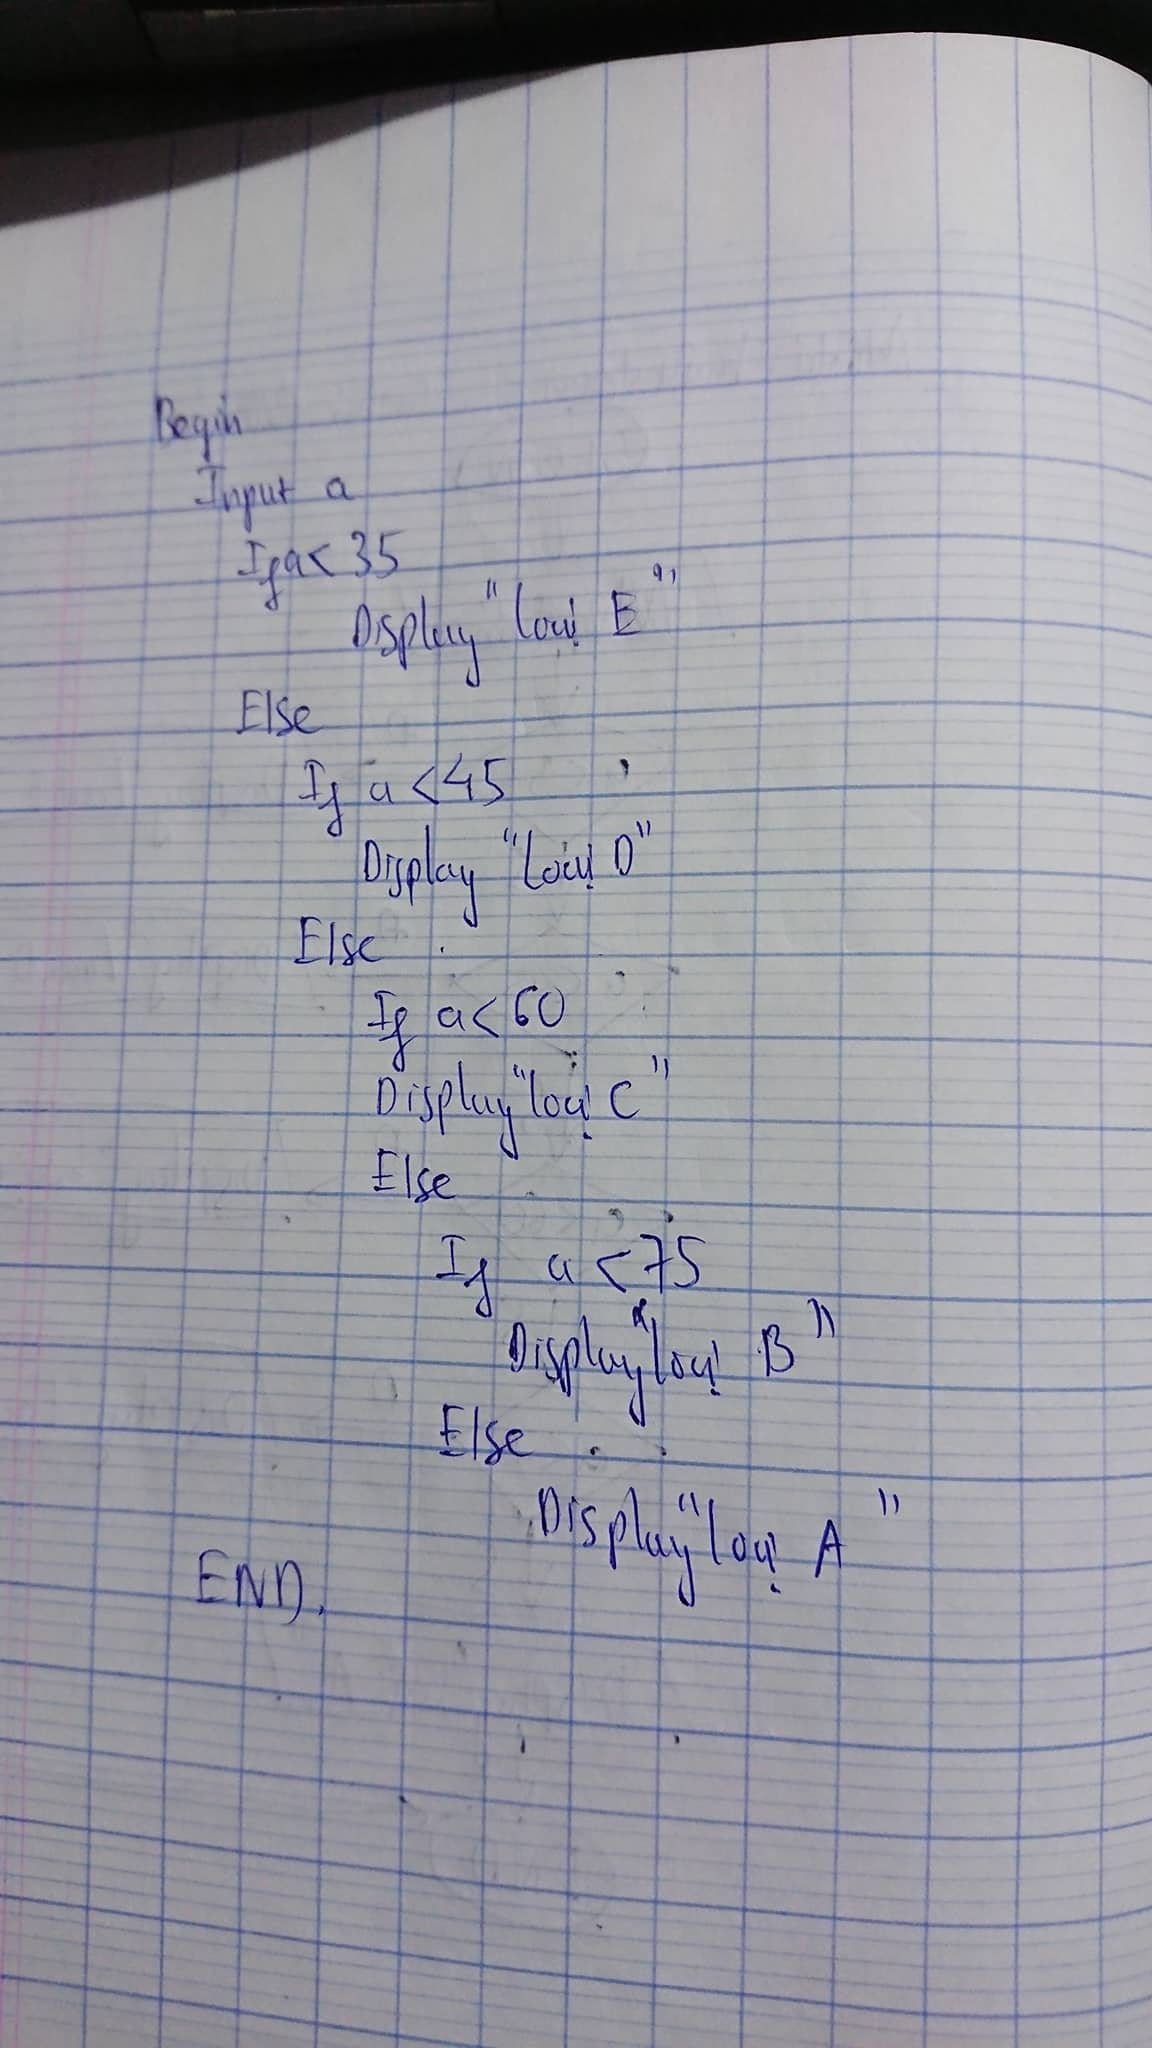 Begin
Input a
If a < 35
Display "loại E"
Else
If a < 45
Display "Loại D"
Else
If a < 60
Display "loại C"
Else
If a < 75
Display "loại B"
Else
Display "loại A"
END.